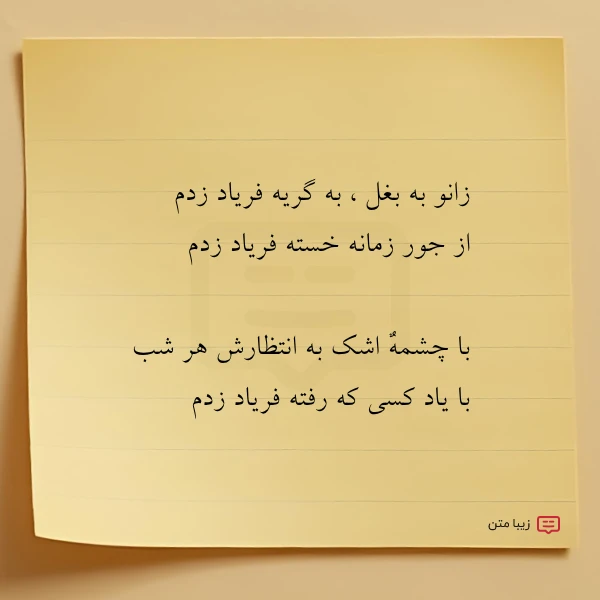 زانو به بغل ، به گریه فریاد زدم
از جور زمانه خسته فریاد زدم
با چشمهٌ اشک به انتظارش هر شب
با یاد کسی که رفته فریاد زدم
زیبا متن